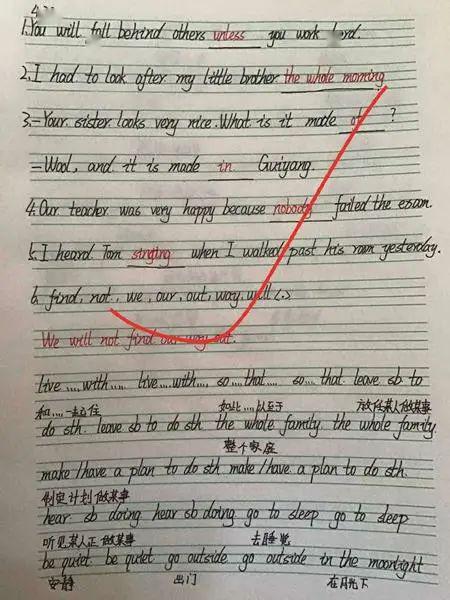 1. You will fall behind others unless you work hard.
2. I had to look after my little brother the whole morning
3. — Your sister looks very nice. What is it made of ?
— Wool, and it is made in Guiyang.
4. Our teacher was very happy because nobody failed the exam.
5. I heard Tom singing when I walked past his room yesterday.
6. find, not, we, our, out, way, will (.)
We will not find our way out.
live....with..... live....with.... so...that.... so...that. leave sb to
和....一起住 如此....以至于 放任某人做某事
do sth. leave sb to do sth. the whole family. the whole family.
整个家庭
make/have a plan to do sth make/have a plan to do sth.
制定计划做某事
hear sb doing hear sb doing go to sleep go to sleep
听见某人正做某事 去睡觉
be quiet. be quiet go outside go outside in the moonlight
安静 出门 在月光下